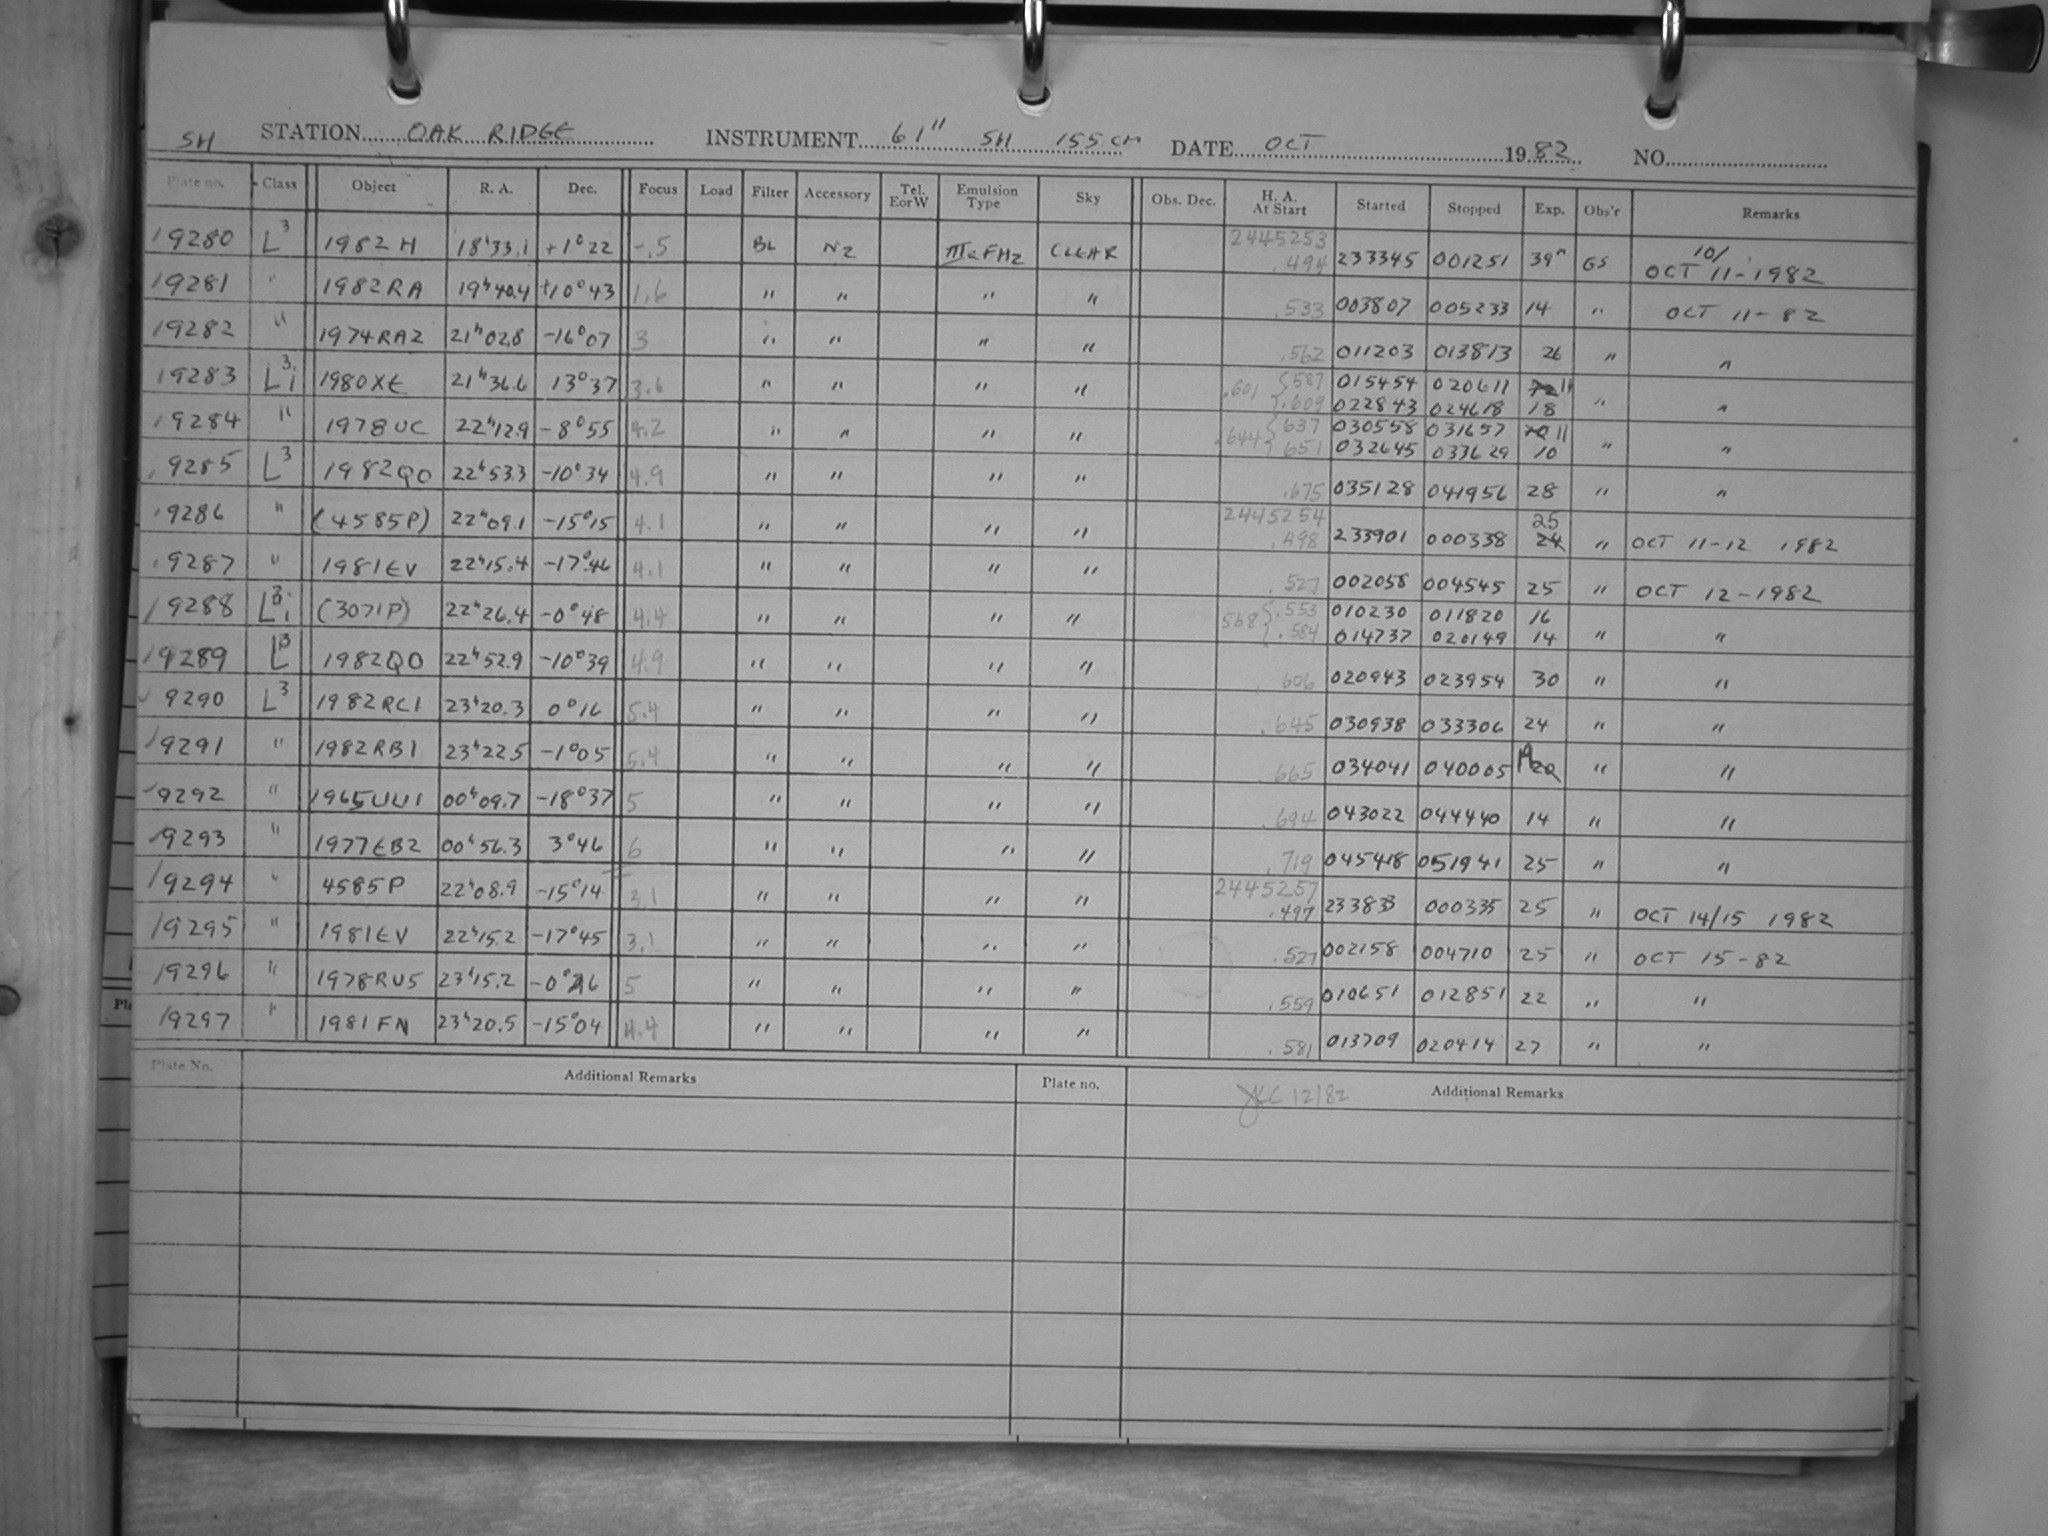 SH STATION OAK RIDGE INSTRUMENT 61" SH 155 cm DATE OCT 1982 NO.
Plate no. Class Object R. A. Dec. Focus Load Filter Accessory Tel. EorW Emulsion Type Sky Obs. Dec. H. A. At Start Started Stopped Exp. Obs'r Remarks
19280 L3 1982 H 18h33.1 +1°22 -.5 BL N2 IIIaFH2 CLEAR 2445253 .494 233345 001251 39m GS 10/ OCT 11-1982
19281 " 1982RA 19h40.4 +10°43 1.6 " " " " .533 003807 005233 14 " OCT 11-82
19282 " 1974RA2 21h02.8 -16°07 3 " " " " .562 011203 013813 26 " "
19283 L3i 1980XE 21h36.6 13°37 3.6 " " " " .601 { .587 015454 020611 11 " "
.609 022843 024618 18
19284 " 1978UC 22h12.9 -8°55 4.2 " " " " .644 { 637 030558 031657 11 " "
651 032645 033629 10
19285 L3 1982QO 22h53.3 -10°34 4.9 " " " " .675 035128 041956 28 " "
19286 " (4585P) 22h09.1 -15°15 4.1 " " " " 2445254 .498 233901 000338 25 24 " OCT 11-12 1982
19287 " 1981EV 22h15.4 -17°46 4.1 " " " " .527 002058 004545 25 " OCT 12-1982
19288 L3i (3071P) 22h26.4 -0°48 4.4 " " " " 568 { .553 010230 011820 16 " "
.584 014737 020149 14
19289 L3 1982QO 22h52.9 -10°39 4.9 " " " " .606 020943 023954 30 " "
19290 L3 1982RC1 23h20.3 0°16 5.4 " " " " .645 030938 033306 24 " "
19291 " 1982RB1 23h22.5 -1°05 5.4 " " " " .665 034041 040005 " "
19292 " 1965UU1 00h09.7 -18°37 5 " " " " .694 043022 044440 14 " "
19293 " 1977EB2 00h56.3 3°46 6 " " " " .719 045418 051941 25 " "
19294 " 4585P 22h08.9 -15°14 3.1 " " " " 2445257 .497 233833 000335 25 " OCT 14/15 1982
19295 " 1981EV 22h15.2 -17°45 3.1 " " " " .527 002158 004710 25 " OCT 15-82
19296 " 1978RU5 23h15.2 5 " " " " .559 010651 012851 22 " "
19297 " 1981FN 23h20.5 -15°04 4.4 " " " " .581 013709 020414 27 " "
Plate No. Additional Remarks Plate no. Additional Remarks
12/82